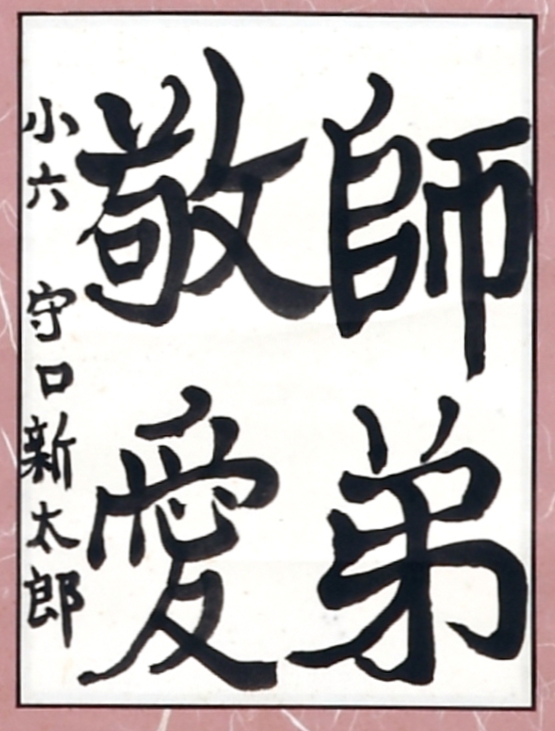 師弟
敬愛
小六 守口新太郎